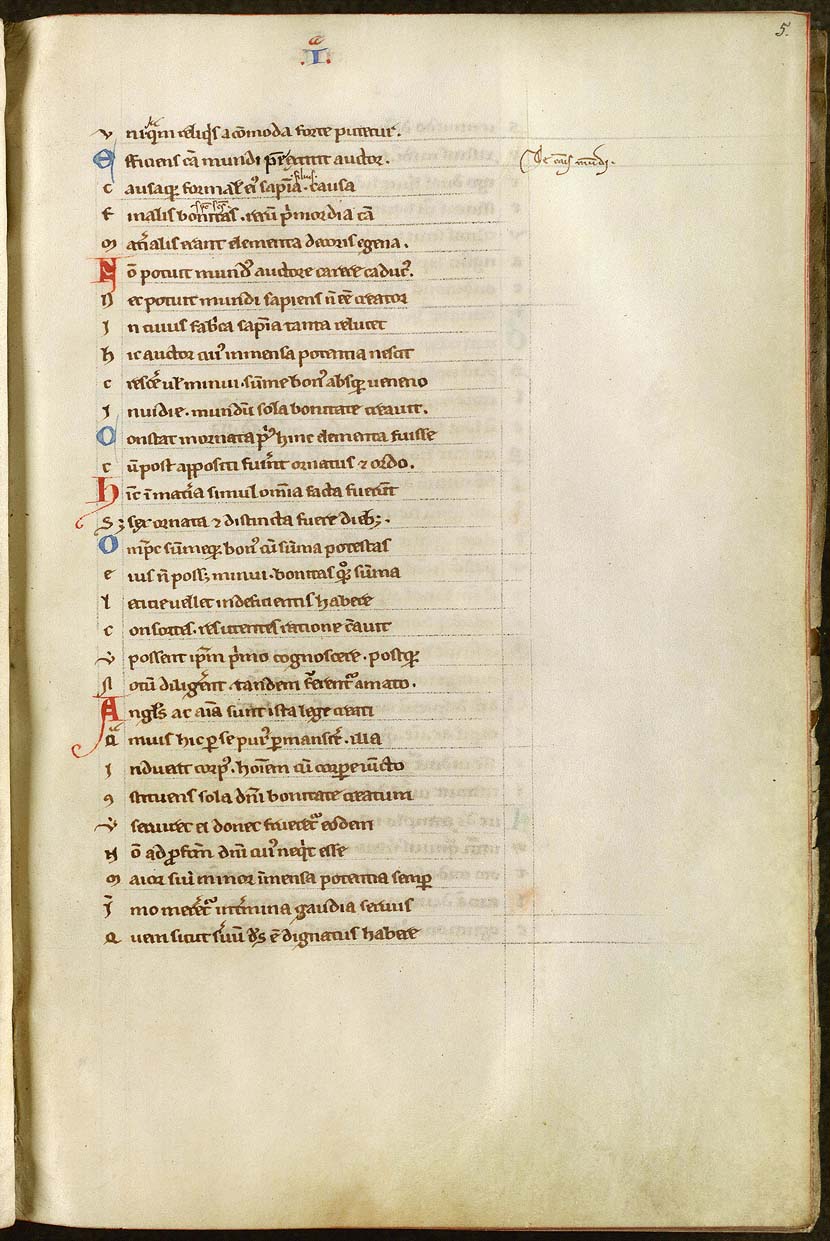 5.
.I.
a
v nicq̄m reliq̄s acōmoda forte putetur.
E fficiens cā mundi extitit auctor.
De cāis mūdi.
filius.
c ausaq; formal' ei' sapīa. causa
F inalis bonitas. rerū p̄mordia cā
m at'ialis erant elementa decoris egena.
N ō potuit mund' auctore carere caduc'.
N ec potuit mundi sapiens n̄ eē creator
I n cuius fab'ca sapīa tanta relucet
h ic auctor cui' inmensa potentia nescit
c resc'e uł minui. sūme bon' absq; ueneno
I nuidie. mundū sola bonitate creauit.
C onstat inornata p'' hinc elementa fuisse
c ū post appositi fuer̄t ornatus ⁊ ordo.
H īc ī mat'ia simul om̄ia facta fuer̄t
S ; sex ornata ⁊ distincta fuere dieb;.
O mp̄c sūmeq; bon' cū sūma potestas
e ius n̄ poss; minui. bonitas qq; sūma
l eticie uellet indeficientis habere
c onsortes. res utentes ratione c̄auit
v possent ip̄m p̄mo cognoscere. postq;
N otū diliger̄t. tandem fruerent' amato.
A ngl's ac aīa sunt ista lege creati
Q muis hic p se pur' pmanserit. illa
I nduerat corp'. hoīem cū corpore iūcto
9 stituens sola dn̄i bonitate creatum
v seruiret ei donec frueret' eodem
N ō ad pfc̄m dn̄i cui' neq̄t esse
m aior siue minor īmensa potentia semp
I mo mereret' int'mina gaudia seruus
Q uem sicut s'uū d's ē dignatus habere